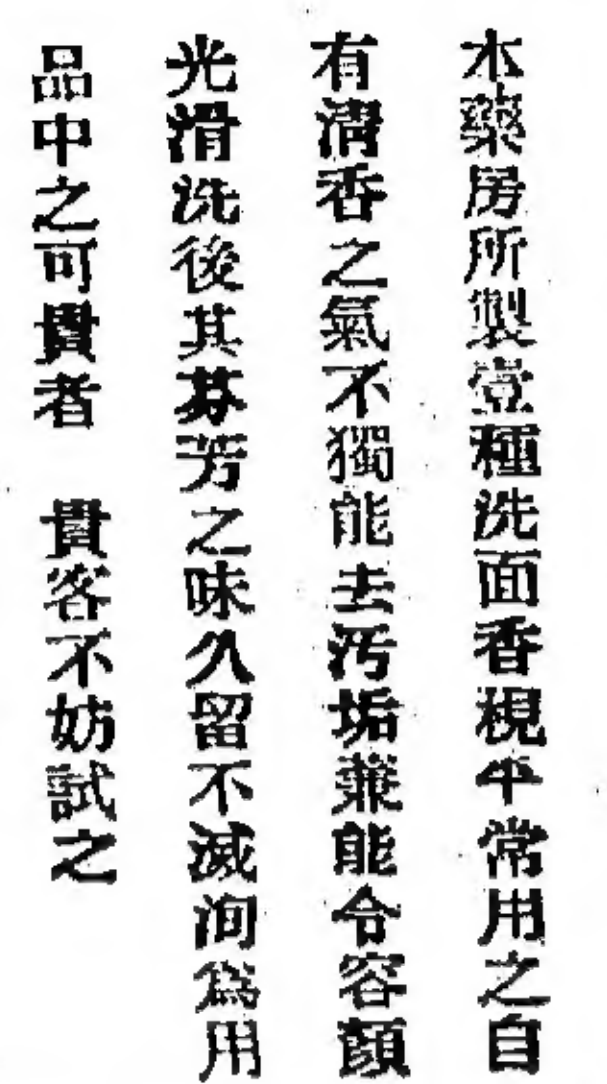 本藥房所製壹種洗面香梘平常用之自
有淸香之氣不獨能去汚垢兼能令容顔
光滑洗後其芬芳之味久留不滅洵爲用
品中之可貴者 貴客不妨試之